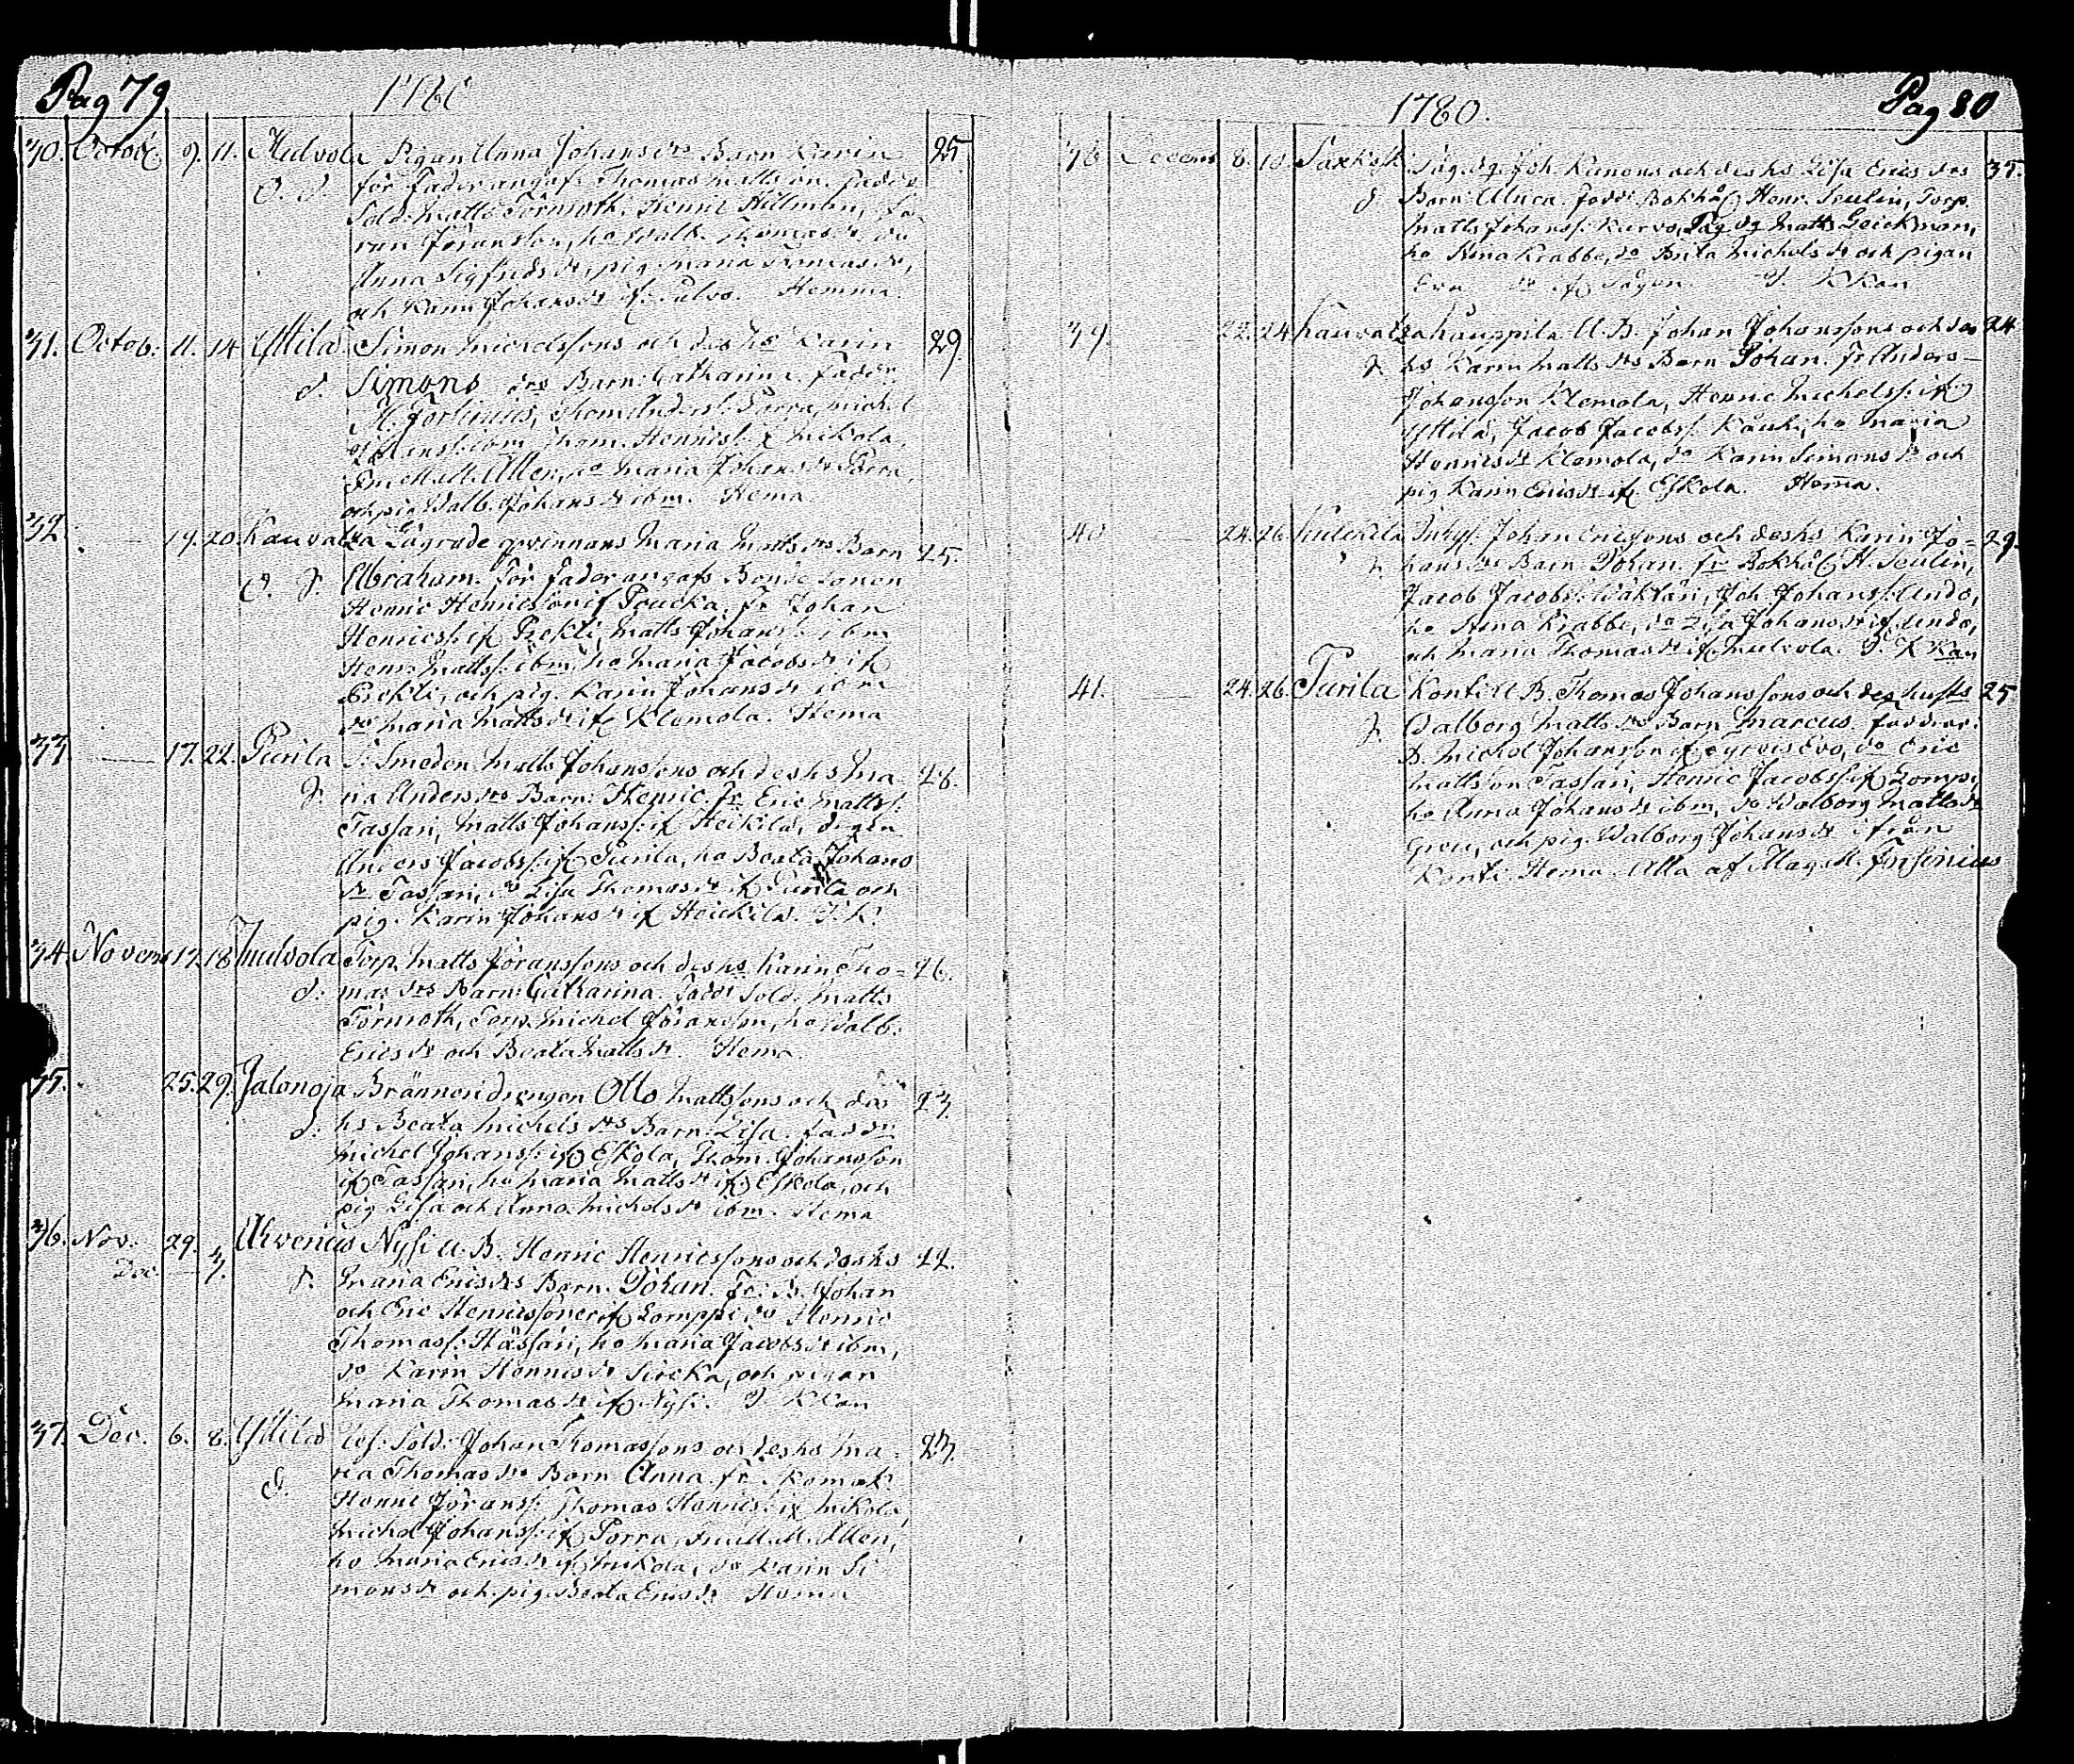 Pag 79
1780
30. Octob. 9. 11. Hulvola Pigan Anna Johans drs Barn Karin 25
O. d. för fader angafs Thomas Mattsson. fadd.
Sold. Matts Törnroth, Henric Hillman,
ran Jöransson, ho Walb. Thomas dr do
Anna Sigfrids dr, pig. Maria Thomas dr,
och Karin Johans dr if. Hema
31. Octob. 11. 14 Yttilä Simon Michelssons och des ho Karin 29
d. Simons drs Barn: Catharina. faddr:
M. Forsinius, Thom. Anderss: Porra, Michel
ibm Thom. Henricss: if Mikola,
M. Allen, do Maria Johans dr Porra,
och pig. Walb. Johans dr ibm. Hema
32. — 19. 20 Kauvatza Lägrade qvinnans Maria Matts drs Barn 25.
O. S. Abraham. för fader angafs Bonde sonen
Henric Henricsson if Poucka. Fr Johan
Henricss: if Piekli, Matts Johanss: ibm
Henr. Mattss: ibm, ho Maria Jacobs dr if
Piekli, och pig. Karin Johans dr ibm
do Maria Matts dr if Klemola. Hema
33 — 17. 22. Purila S: Smeden Matts Johanssons och des hs Ma- 28.
S. ria Anders drs Barn: Henric. Fr Eric Mattss:
Tassari, Matts Johanss: if Heikilä, drgen
Anders Jacobss: if Purila, ho Beata Johans
dr Tassari, do Lisa Thomas dr if Purila och
pig. Karin Johans dr if Heickilä. S. K.
34. Novem 17. 18 Hulvola Torp. Matts Jöranssons och des hs Karin Tho- 26.
d. mas drs Barn: Catharina. fadr Sold. Matts
Törnroth, Torp. Michel Jöransson, ho Walb.
Erics dr och Beata Matts dr. Hema
35. 25. 29. Jalonoja Bränneri drengen Otto Mattssons och des 23.
d. hs Beata Michels drs Barn: Lisa. faddr
Michel Johanss: if Eskola, Thom. Johansson
if Tassari, ho Maria Matts dr if Eskola, och
pig. Lisa och Anna Michels dr ibm. Hema
36. Nov. 29. Ahvenus Nysi U. B. Henric Henricssons och des hs 22.
Dec. — 3. S. Maria Erics drs Barn. Johan. Fr: B. Johan
och Eric Henricssöner if Lomppi do Henric
Thomass: Hässari, ho Maria Jacobs dr ibm,
do Karin Henrics dr Sircka, och pigan
Maria Thomas dr if Nysi. S. KKan
37. Dec. 6. 8. Yttilä Sold: Johan Thomassons och des hs Ma- 23.
d. ria Thomas drs Barn Anna. fr.
Henric Jöranss: Thomas Henricss: if Mikola,
Michel Johanss: if Porra, M. Allen,
ho Maria Erics dr if Mikola, do Karin Si
mons dr och pig. Beata Erics dr Hema
Pag 80
1780.
38 Decem 8. 10. Saxkosk Såg. dg. Joh. Kunons och des hs Lisa Erics drs 35.
d. Barn: Ulrica. fadd: Bokhål. Henr. Seulin, Torp.
Matts Johanss: Kurvo, Såg dg Matts Geickman,
ho Stina Krabbe, do Brita Michels dr och pigan
Eva dr if Sågen. S. KKan
39. — 22. 24 Kauvatza Kauppila U. B. Johan Johanssons och des 24
S. hs Karin Matts drs Barn Johan. Fr Anders
Johansson Klemola, Henric Michelss: if
Yttilä, Jacob Jacobss: Kauk, ho Maria
Henrics dr Klemola, do Karin Simons dr och
pig. Karin Erics dr if Eskola. Hema.
40 — 24. 26. Kulckila Inhys. Johan Ericssons och des hs Karin Jo- 29.
S. hans drs Barn Johan. Fr Bokhål. H. Seulin,
Jacob Jacobss: Wäktäri, Joh. Johanss: Undo,
ho Stina Krabbe, do Lisa Johans dr if Undo,
och Maria Thomas dr if Hulvola. S. KKan
41. — 24. 26. Purila Konti U B. Thomas Johanssons och des hustrs 25
S. Walborg Matts drs Barn Marcus. faddrar.
B. Michel Johansson if Evo, do Eric
Mattsson Tassari, Henric Jacobss: if Lomppi
ho Anna Johans dr ibm, do Walborg Matts dr
Greu, och pig. Walborg Johans dr ifrån
Konti. Hema. Alla af Mag. M. Forsinius